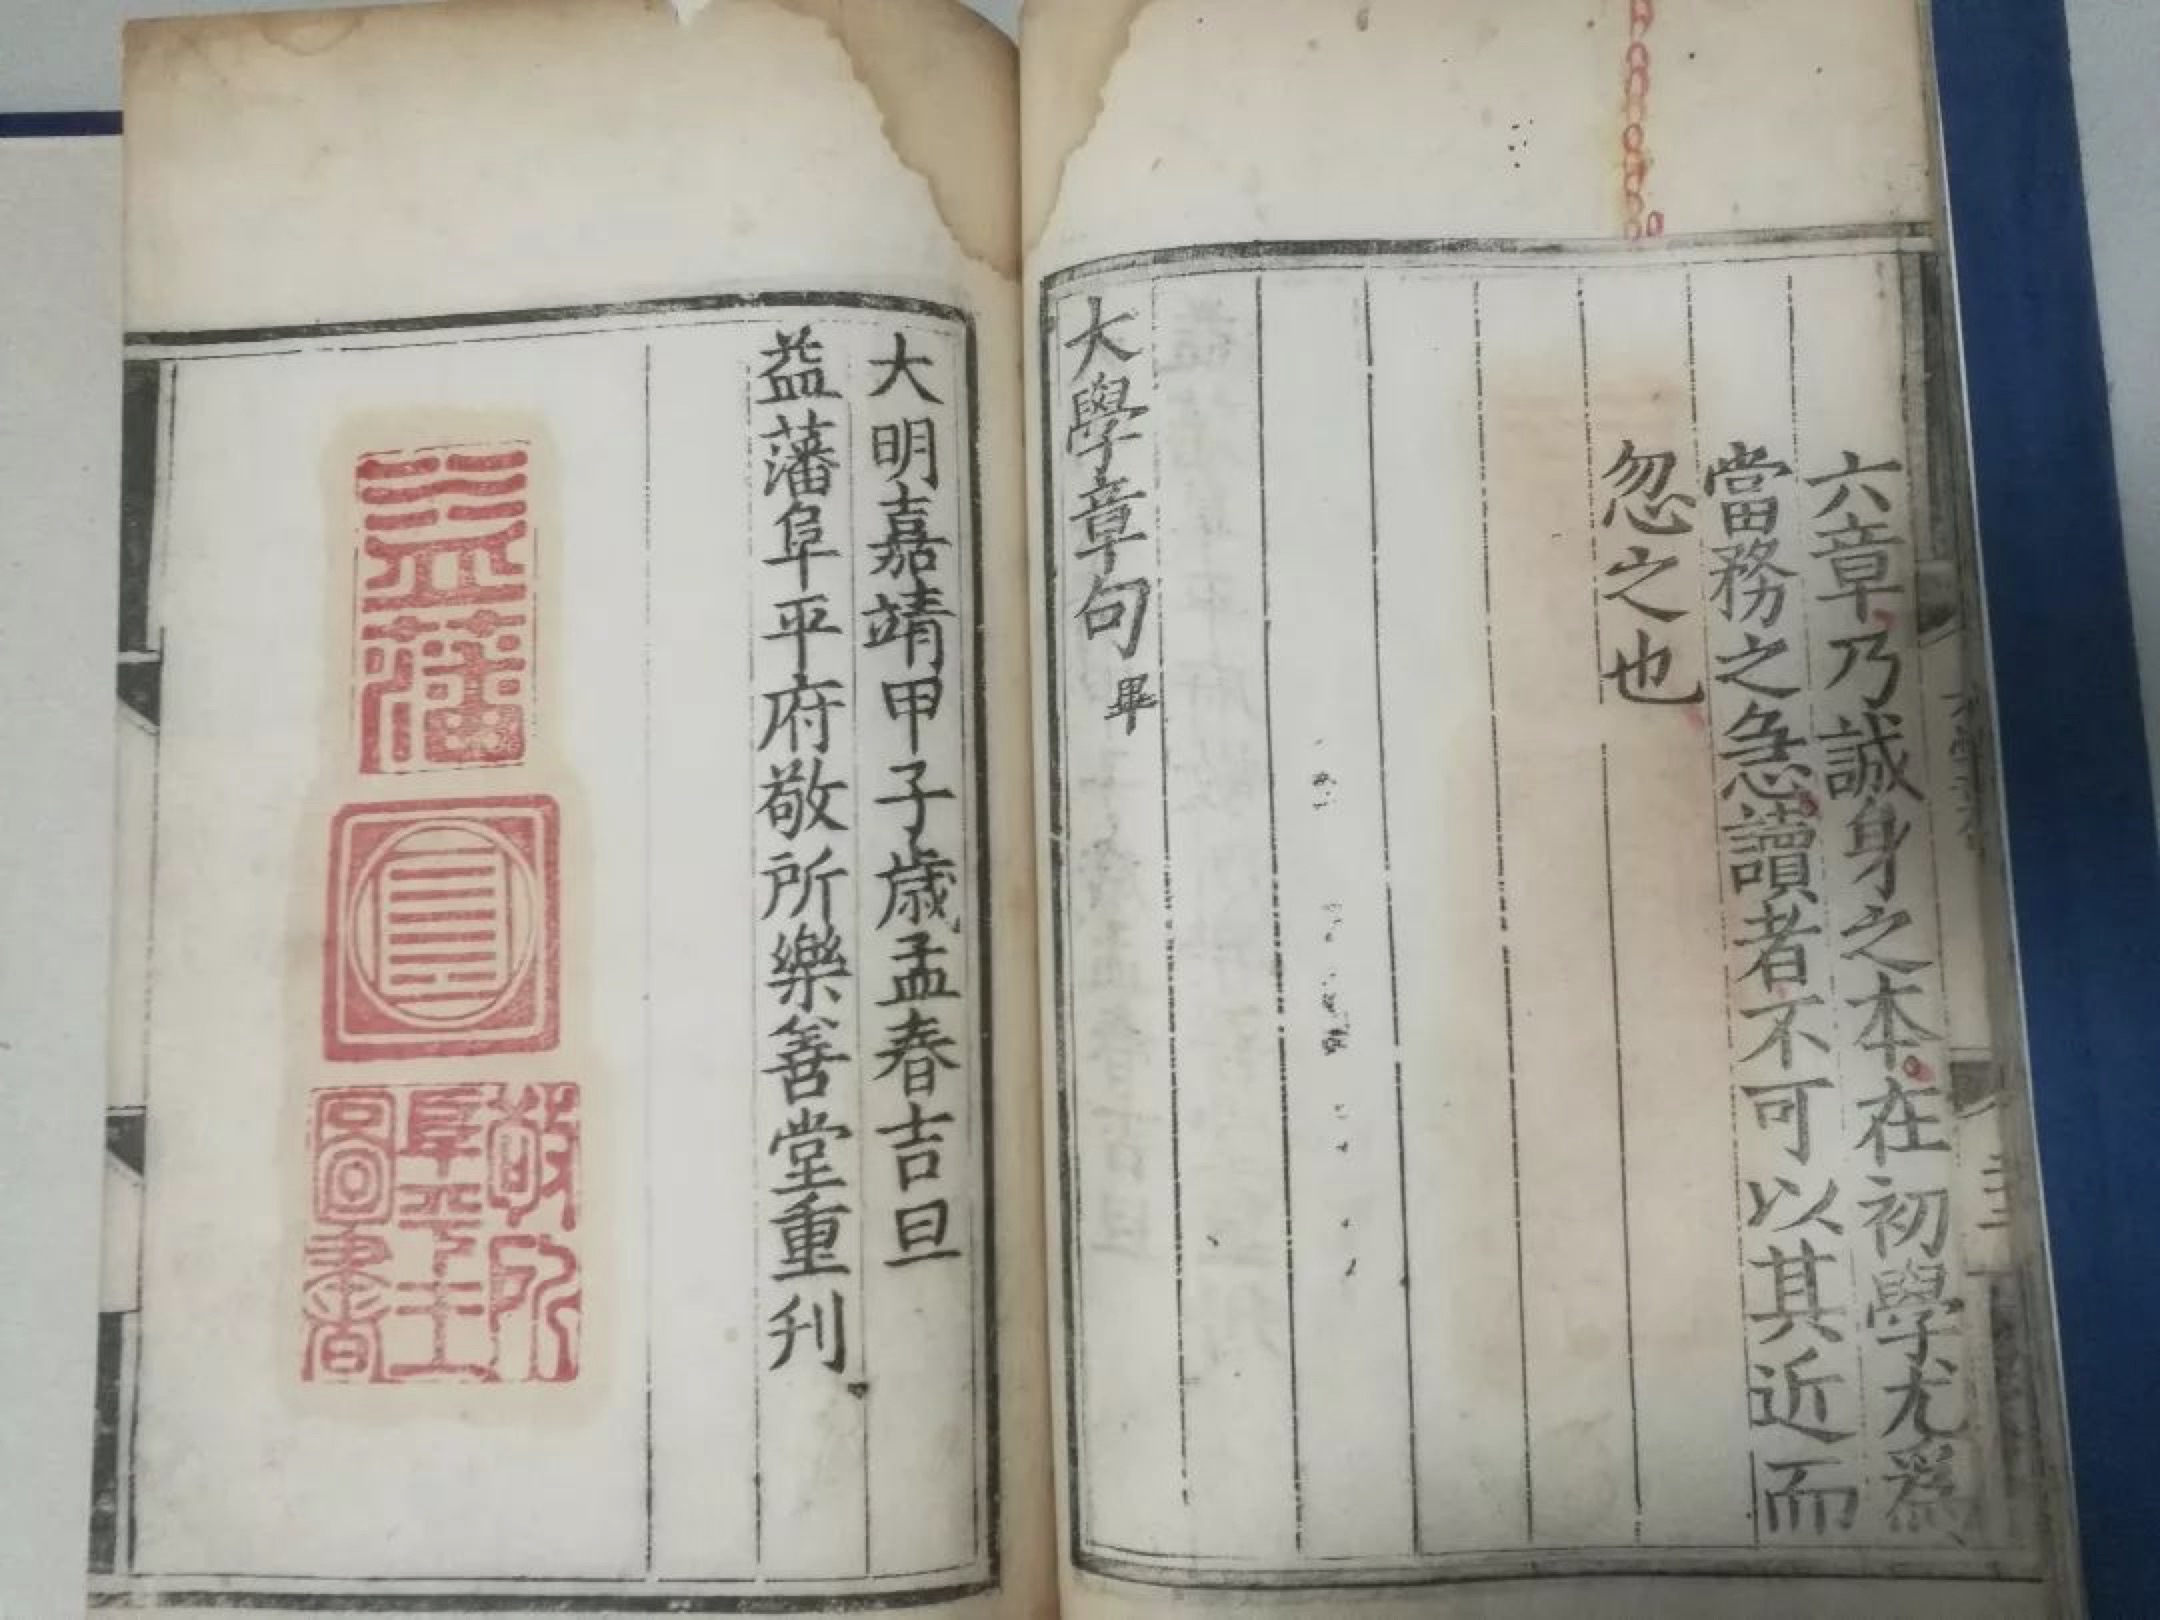 六章乃誠身之本在初學尤爲
當務之急讀者不可以其近而
忽之也
大學章句畢
大明嘉靖甲子歲孟春吉旦
益藩阜平府敬所樂善堂重刋
益藩
敬所
阜平王
圖書